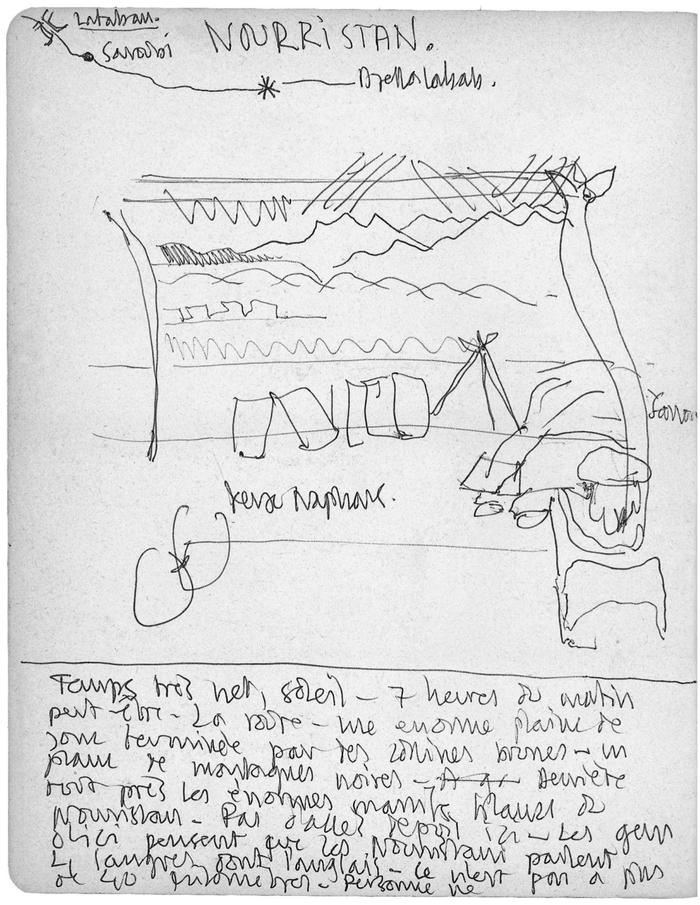 Lataban.
Saroubi
NOURRISTAN.
Djellalabab.
Temps très net, soleil – 7 heures du matin
peut-être – La route – une énorme plaine de
jonc terminée par des collines brunes – un
plan de montagnes noires – Derrière
tout près les énormes blancs du
Nourristan – Pas d'accès depuis ici – Les gens
d'ici pensent que les Nourristani parlent
4 langues dont l'anglais – Ce n'est pas à plus
de 40 kilomètres – Personne ne